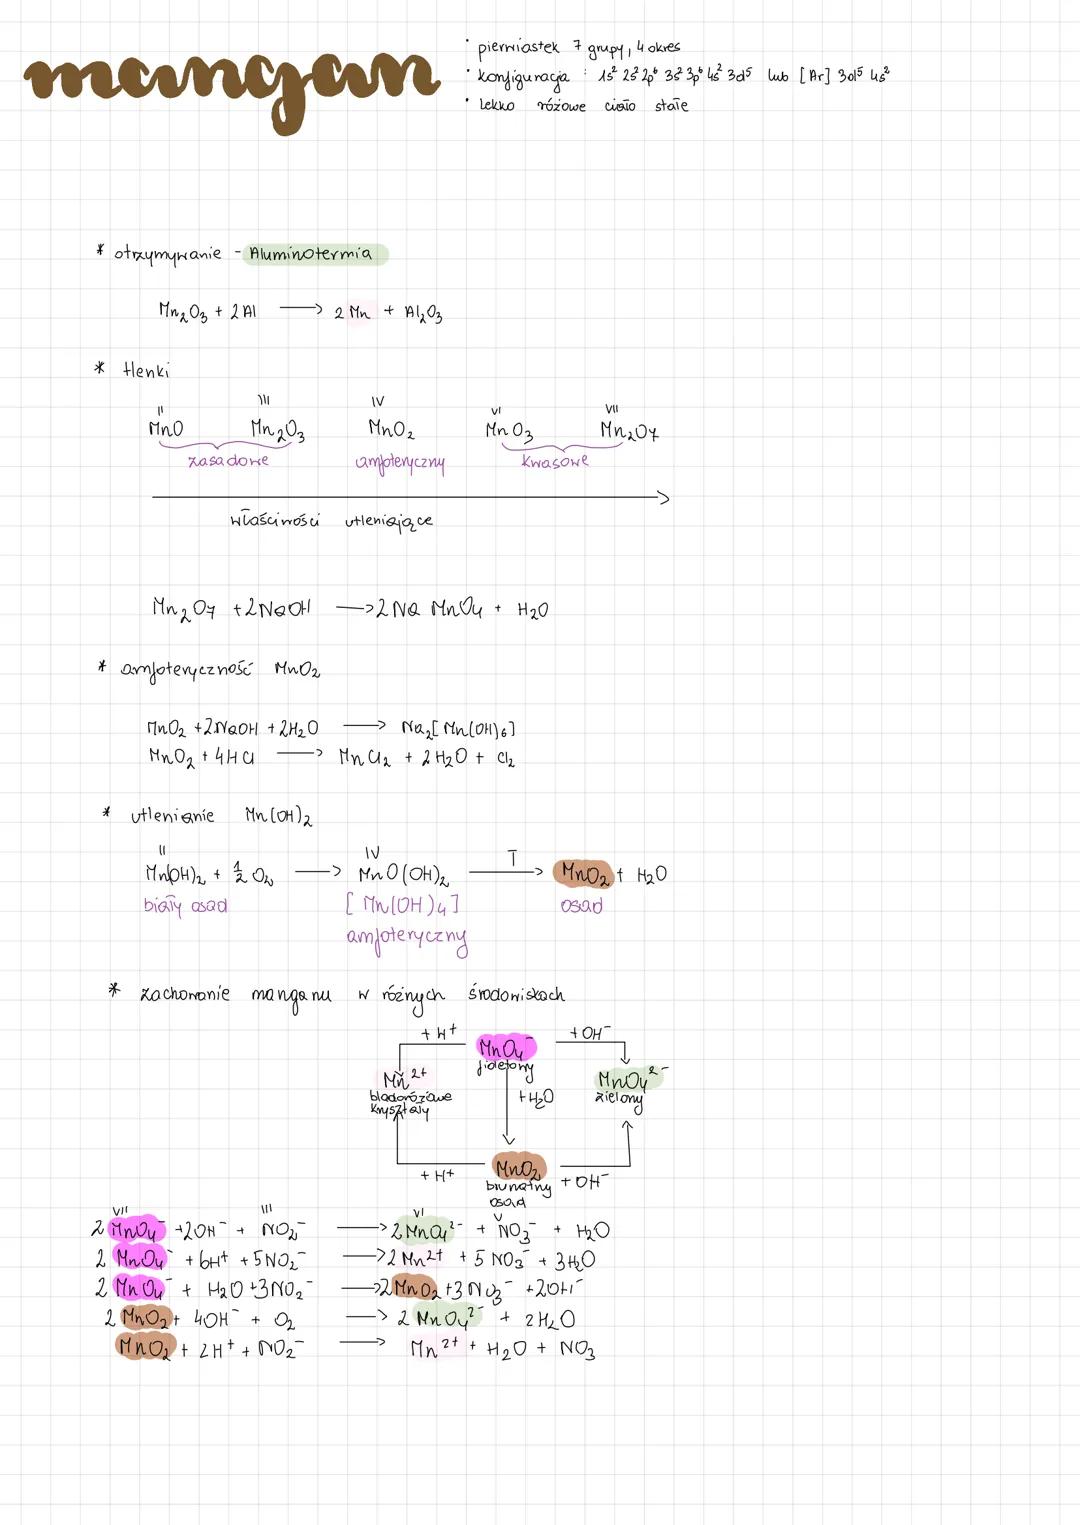 mangan
• pierwiastek 7 grupy, 4 okres
• konfiguracja : 1s² 2s² 2p⁶ 3s² 3p⁶ 4s² 3d⁵ lub [Ar] 3d⁵ 4s²
• lekko różowe ciało stałe
* otrzymywanie - Aluminotermia
Mn₂O₃ + 2Al ⟶ 2 Mn + Al₂O₃
* tlenki
II III IV VI VII
MnO Mn₂O₃ MnO₂ MnO₃ Mn₂O₇
zasadowe amfoteryczny kwasowe
właściwości utleniające
Mn₂O₇ + 2NaOH ⟶ 2Na MnO₄ + H₂O
* amfoteryczność MnO₂
MnO₂ + 2NaOH + 2H₂O ⟶ Na₂[Mn(OH)₆]
MnO₂ + 4HCl ⟶ MnCl₂ + 2H₂O + Cl₂
* utlenianie Mn(OH)₂
II IV T
Mn(OH)₂ + ½ O₂ ⟶ MnO(OH)₂ ⟶ MnO₂ + H₂O
biały osad [Mn(OH)₄] osad
amfoteryczny
* zachowanie manganu w różnych środowiskach
+ H⁺ MnO₄⁻ + OH⁻
fioletowy
Mn²⁺ MnO₄²⁻
bladoróżowe +H₂O zielony
kryształy
+ H⁺ MnO₂ + OH⁻
brunatny
osad
VII III VI V
2 MnO₄⁻ + 2OH⁻ + NO₂⁻ ⟶ 2 MnO₄²⁻ + NO₃⁻ + H₂O
2 MnO₄⁻ + 6H⁺ + 5NO₂⁻ ⟶ 2 Mn²⁺ + 5 NO₃⁻ + 3H₂O
2 MnO₄⁻ + H₂O + 3NO₂⁻ ⟶ 2 MnO₂ + 3 NO₃⁻ + 2OH⁻
2 MnO₂ + 4OH⁻ + O₂ ⟶ 2 MnO₄²⁻ + 2H₂O
MnO₂ + 2H⁺ + NO₂⁻ ⟶ Mn²⁺ + H₂O + NO₃